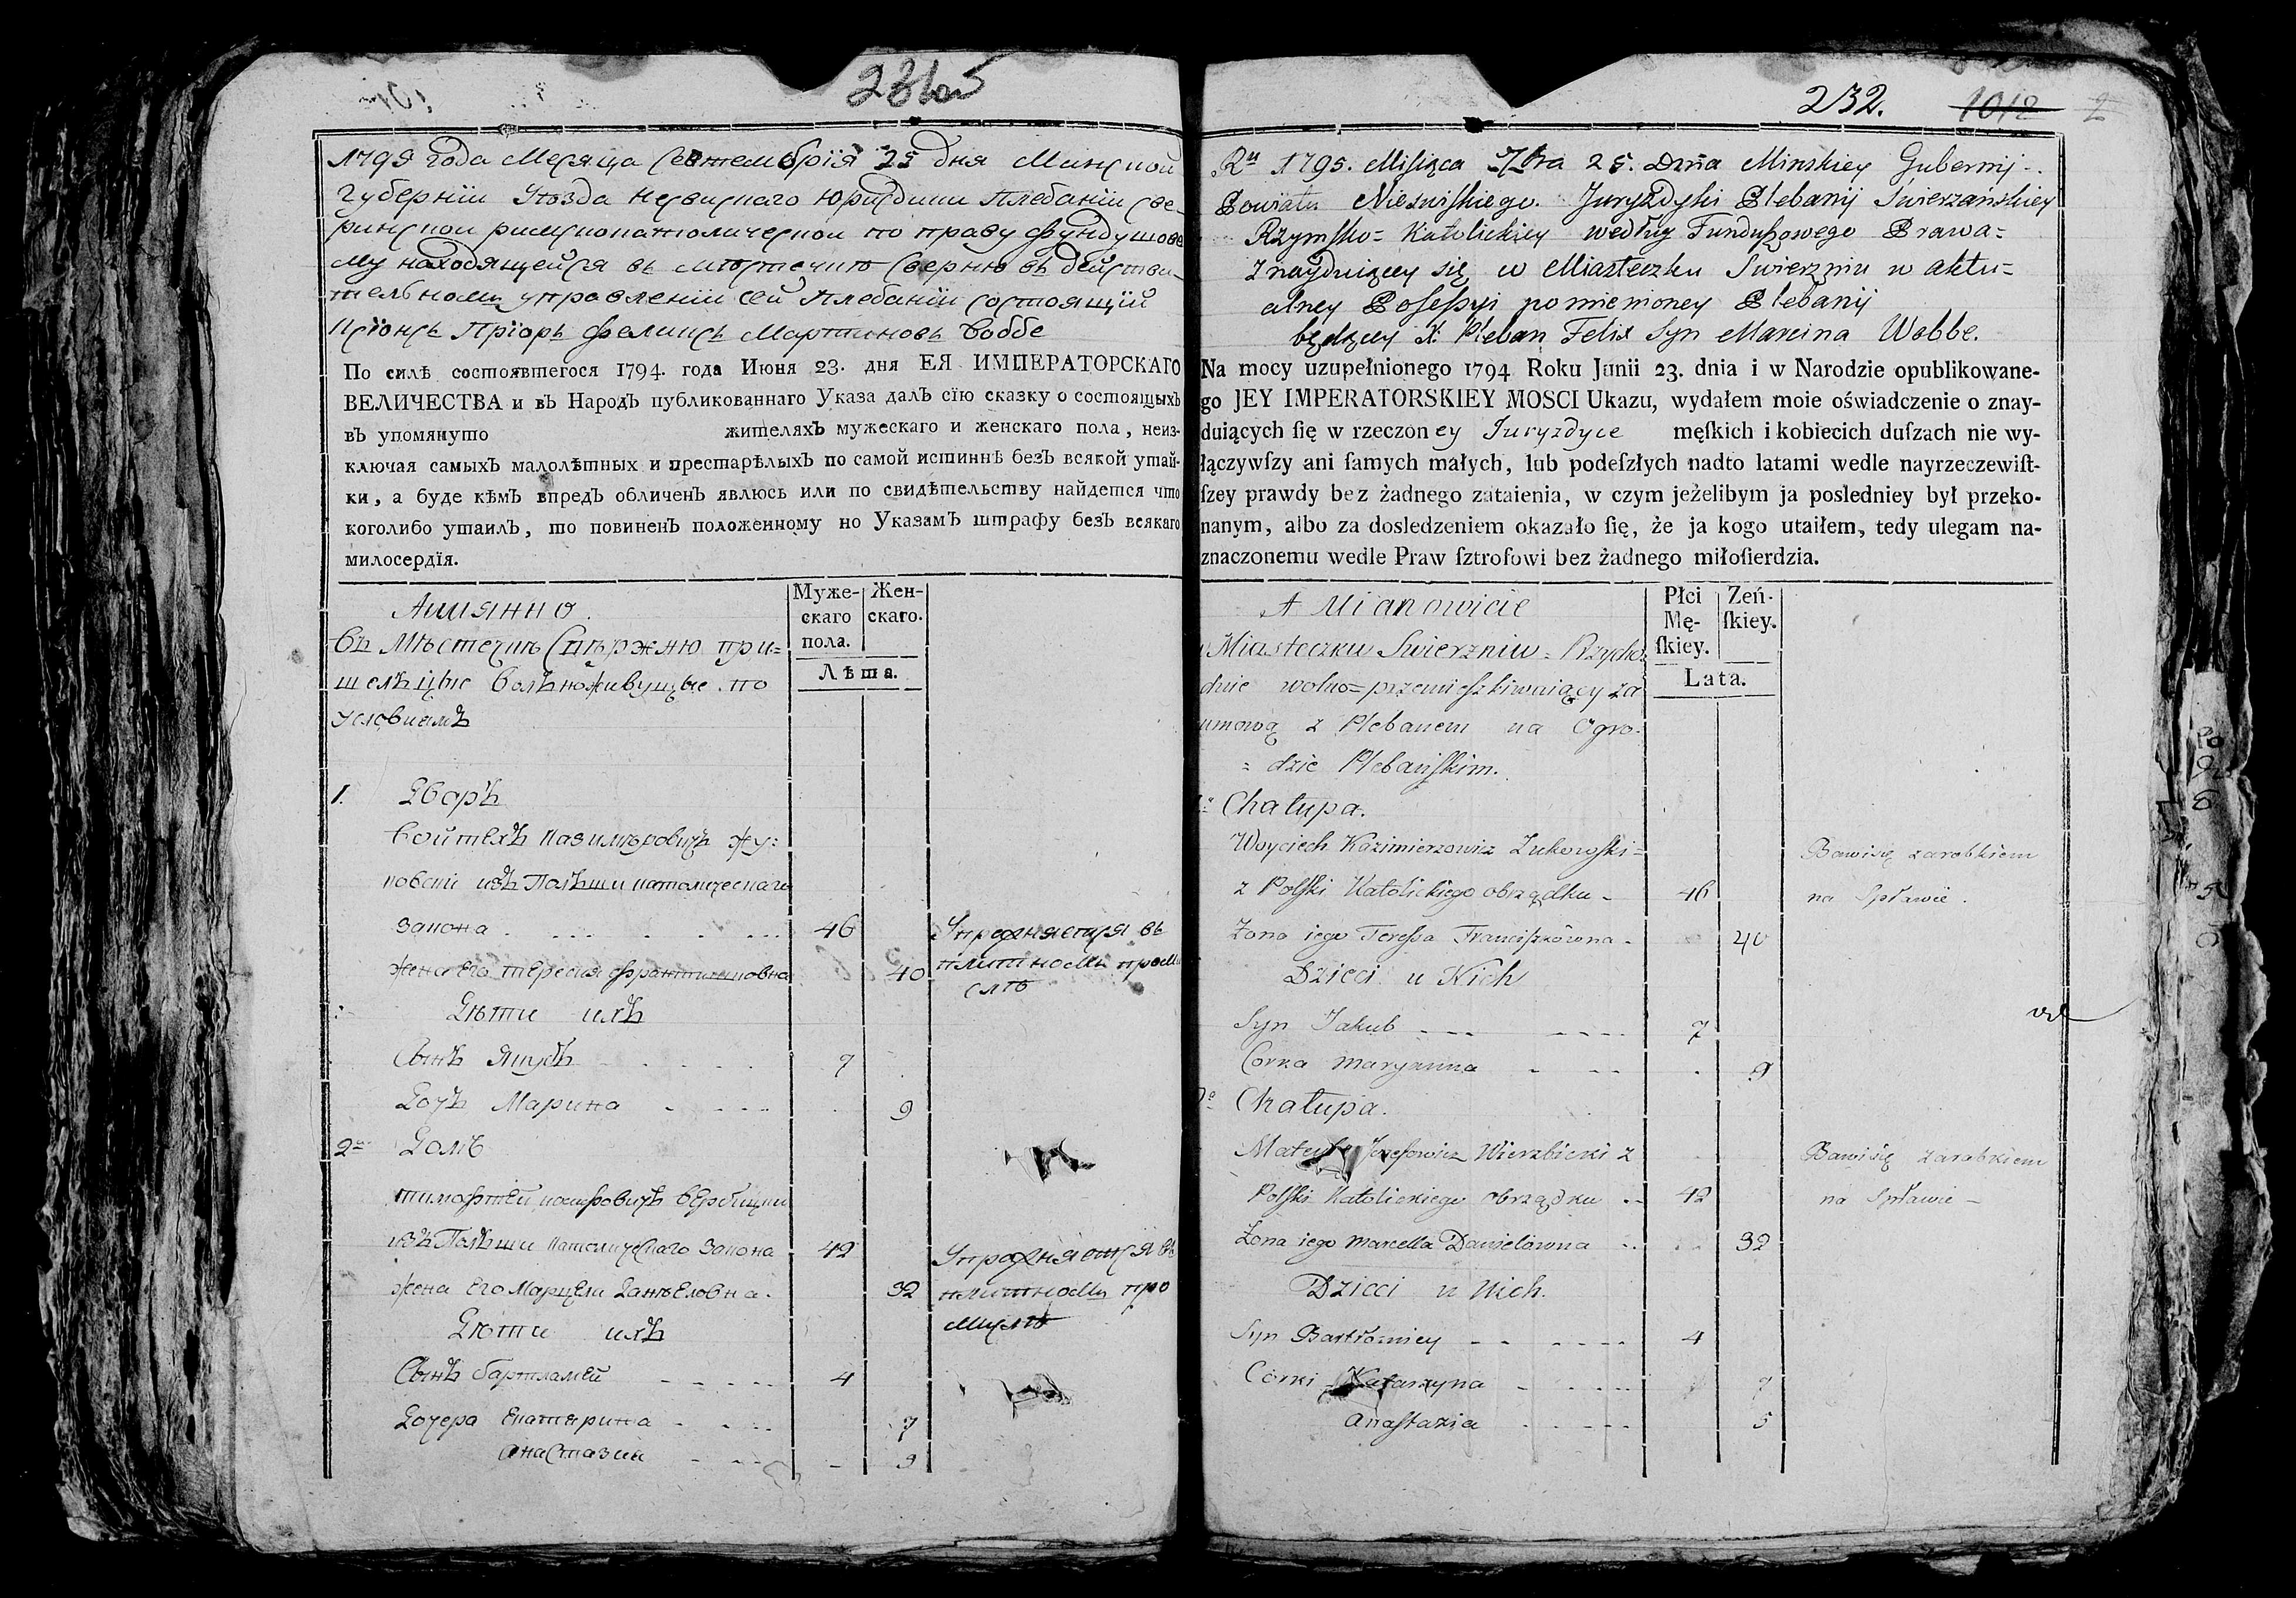 231об
1795 года Месяца Сентембрїя 25 дня Минской
Губернїи Уѣзда Несвискаго Юриздики Плебанїи Све-
ринской римскокатолической по праву фундушово
му находящейся въ мѣстечкѣ Сверню въ действи-
тельномъ управленїи сей Плебанїи состоящїй
Ксїонзъ Прїоръ Феликсъ Мартиновъ Воббе
По силѣ состоявшегося 1794. года Июня 23. дня ЕЯ ИМПЕРАТОРСКАГО
ВЕЛИЧЕСТВА и въ Народъ публикованнаго Указа далъ сїю сказку о состоящыхъ
въ упомянуто жителяхъ мужескаго и женскаго пола, неиз-
ключая самыхъ малолѣтныхъ и престарѣлыхъ по самой истиннѣ безъ всякой утай-
ки, а буде кѣмъ впредъ обличенъ явлюсь или по свидѣтельству найдется что
коголибо утаилъ, то повиненъ положенному по Указамъ штрафу безъ всякаго
милосердїя.
Аимянно.
Муже-
скаго
пола.
Жен-
скаго.
Лѣта.
въ Мѣстечкѣ Свѣржню при=
шелцые вольноживущые по
условиямъ
1. Дворъ
Войтехъ Казимѣровичъ Жу=
ковски изъ Польши католического
закона 46
жена Его тересия францишковна 40
Упражняется въ
плитномъ промы
слѣ
Дѣти ихъ
Сынъ Якубъ 7
Дочъ Марина 9
2 Домъ
тимофтей иосифовичъ вербицки
изъ Польши католичесkаго закона 42
жена Его Марцели Данъеловна 32
Упражняется въ
плитномъ про
мыслѣ
Дѣти ихъ
Сынъ бартламей 4
Дочера Екатерина 7
Анастазия 5
232. 1012 2
Ru 1795. Miesiąca 7bra 25. Dnia Minskiey Gubernij
Powiatu Nieswiskiego. Juryzdyki Plebanij Swierzańskiey
Rzymsko= Katolickiey według Funduszowego Prawa=
znayduiącey się w Miasteczku Swierzniu w aktu=
alney Posessyi pomienioney Plebanij
będący X: Pleban Felix Syn Marcina Wobbe.
Na mocy uzupełnionego 1794 Roku Junii 23. dnia i w Narodzie opublikowane-
go JEY IMPERATORSKIEY MOSCI Ukazu, wydałem moie oświadczenie o znay-
duiących ſię w rzeczoney Juryzdyce męſkich i kobiecich duſzach nie wy-
łączywſzy ani ſamych małych, lub podeſzłych nadto latami wedle nayrzeczewiſt-
ſzey prawdy bez żadnego zataienia, w czym jeżelibym ja posledniey był przeko-
nanym, albo za dosledzeniem okazało ſię, że ja kogo utaiłem, tedy ulegam na-
znaczonemu wedle Praw ſztrofowi bez żadnego miłoſierdzia.
A Mianowicie
Płci
Mę-
ſkiey.
Zeń-
ſkiey.
Lata.
w Miasteczku Swierzniu= Przycho=
dnie wolno=przemieszkiwaiący za
umową z Plebanem na Ogro=
= dzie Plebańskim.
1º Chałupa.
Woyciech Kazimierzowicz Zukowski=
z Polski Katolickiego obrządku 46
Bawi się zarobkiem
na Spławie.
Zona iego Teressa Franciszkówna 40
Dzieci u Nich
Syn Jakub 7
Corka Maryanna 9
2º Chałupa.
Mateusz Jozefowicz Wierzbicki z
Polski Katolickiego obrządku 42
Bawi się zarobkiem
na Spławie
Zona iego Marcella Danielowna 32
Dzieci u Nich.
Syn Bartłomiey 4
Córki Katarzyna 7
Anastazia 5